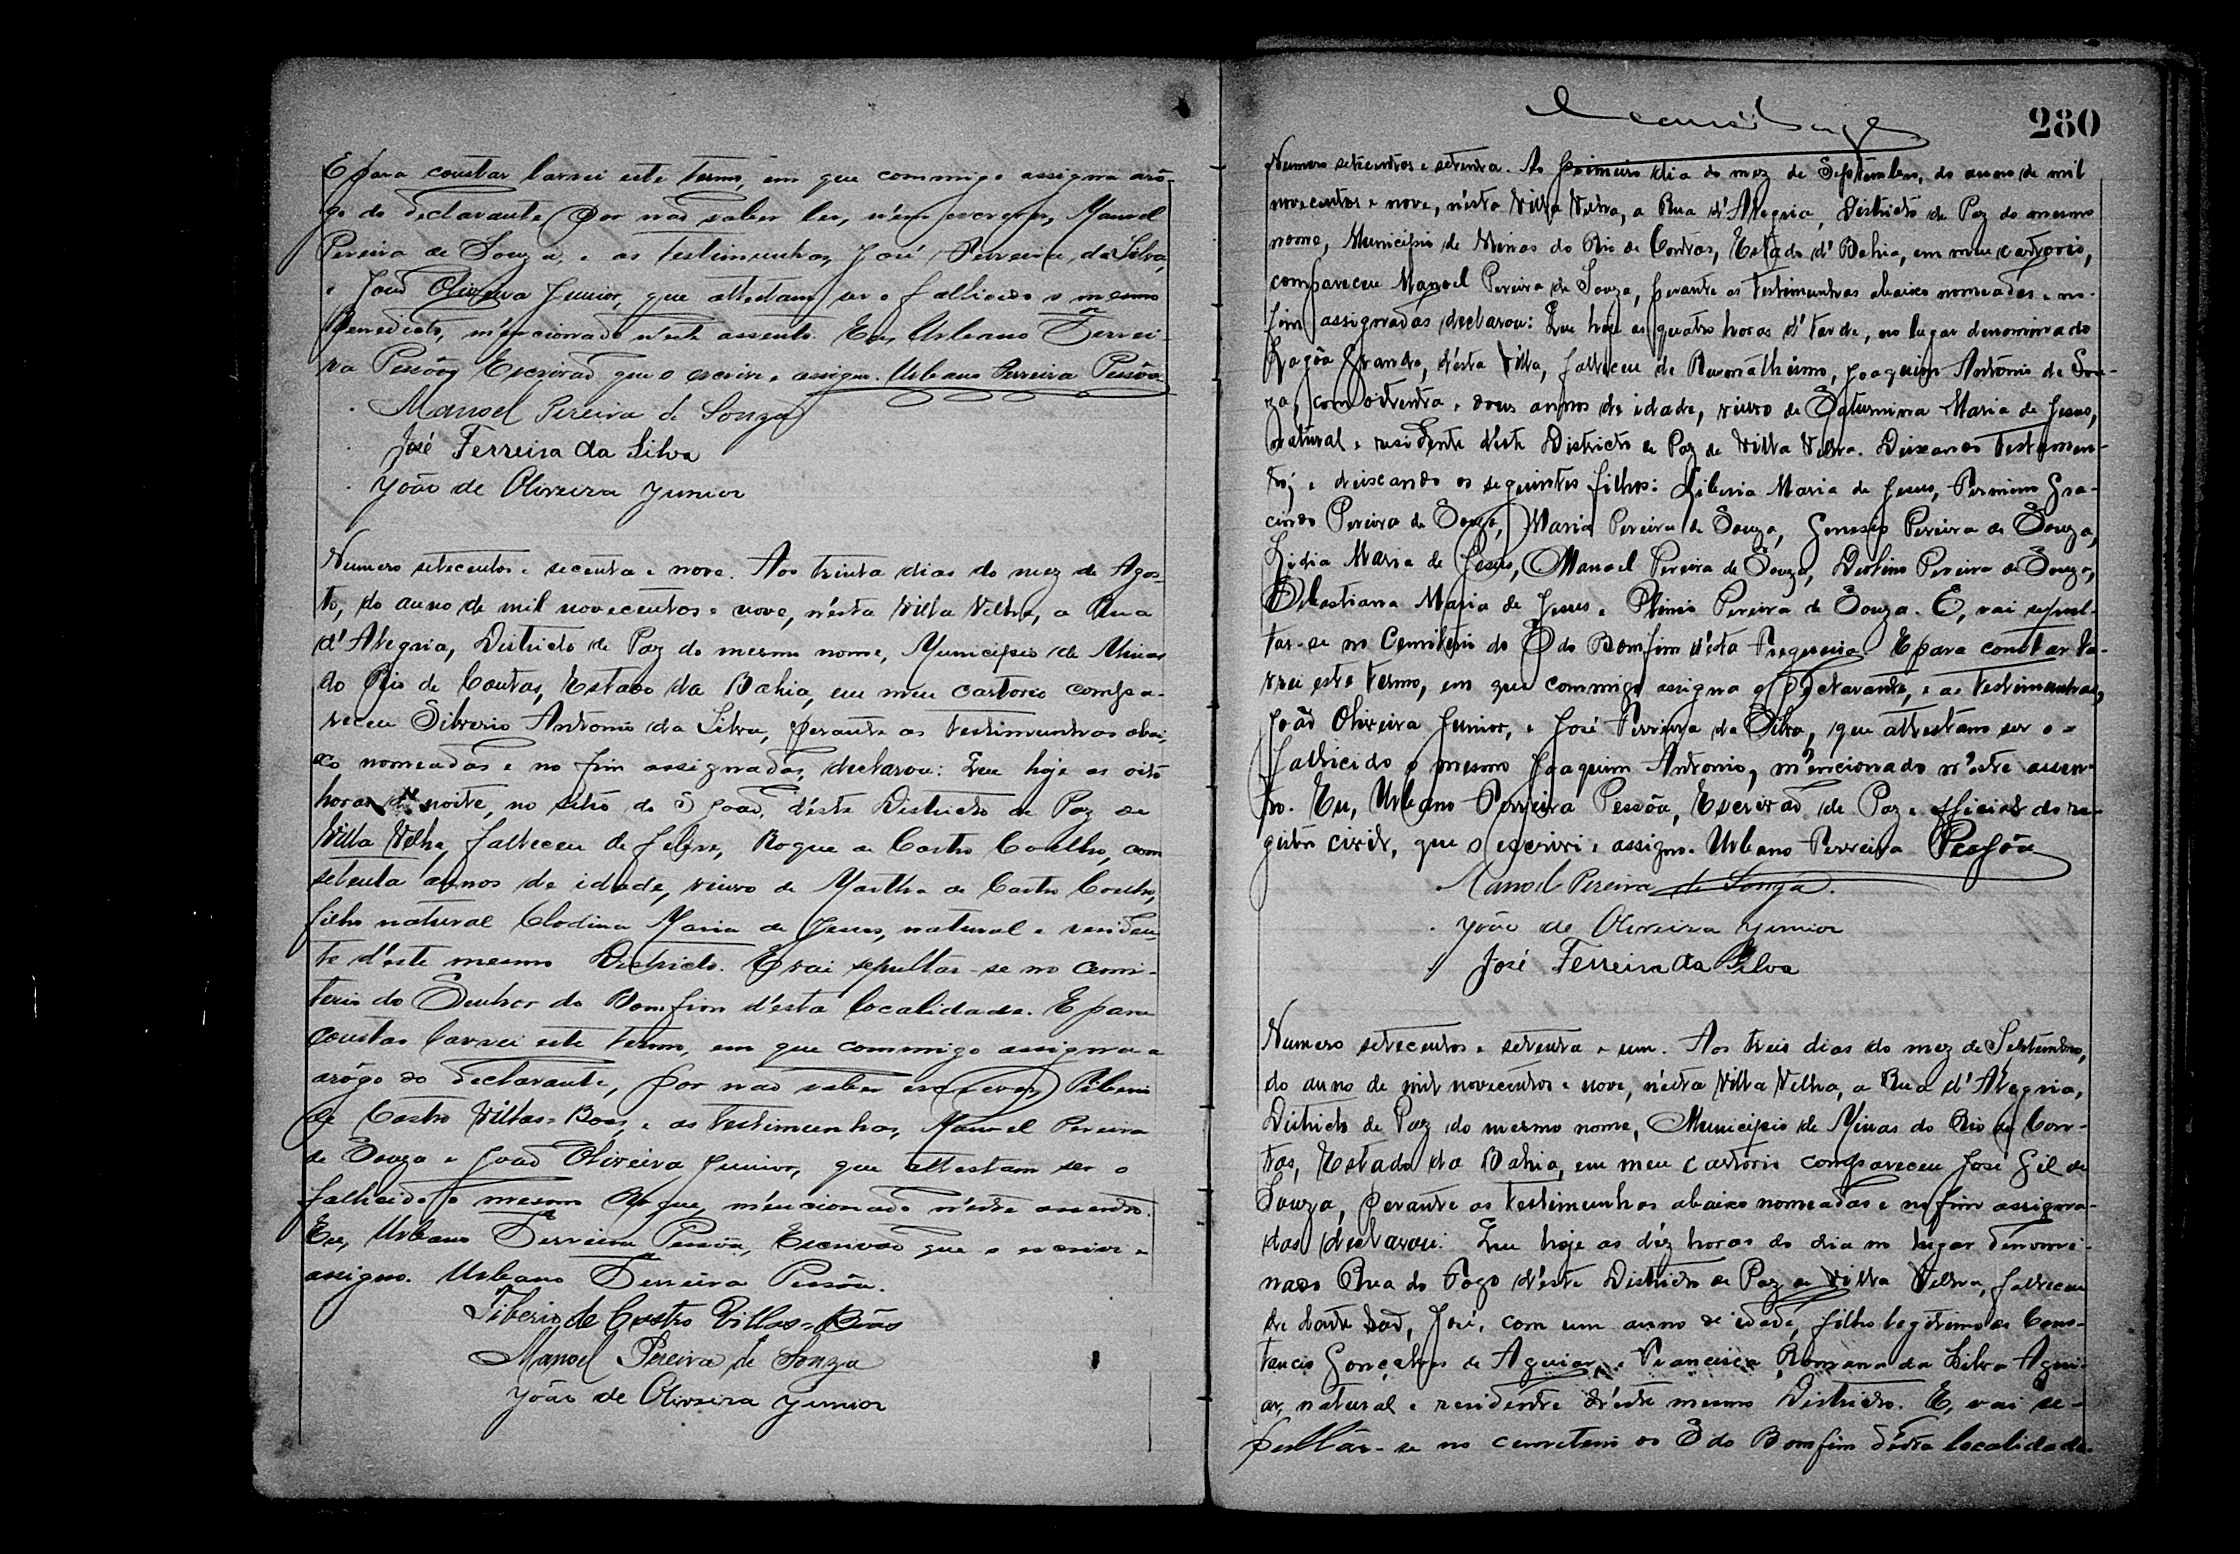 E para constar lavrei este termo, em que commigo assigna aro-
go do declarante por não saber ler, nem escrever, Manoel
Pereira de Souza, e as testimunhas, José Ferreira da Silva,
e João Oliveira Junior, que attestam ser o fallicido o mesmo
Benedicto, m'encionado n'este assento. Eu, Urbano Ferrei-
ra Pessôa Escrivão que o escrivi e assigno. Urbano Ferreira Pessôa
Manoel Pereira de Souza
José Ferreira da Silva
João de Oliveira Junior
Numero setecentos e secenta e nove. Aos trinta dias do mez de Agos-
to, do anno de mil novecentos e nove, n'ésta Villa Velha, a Rua
d'Alegria, Districto de Paz do mesmo nome, Municipio de Minas
do Rio de Contas, Estado da Bahia, em meu cartorio compa-
receu Silverio Antonio da Silva, perante as testimunhas abai-
xo nomeadas e no fim assignadas, declarou: Que hoje as oito
horas da noite, no sitio do S João, d'éste Districto de Paz de
Villa Velha, falleceu de febre, Roque de Castro Coelho, com
setenta annos de idade, viuvo de Martha de Castro Coelho,
filho natural Clodina Maria de Jesus, natural e residen-
te d'éste mesmo Districto. E vai sepultar-se no Cemi-
terio do Senhor do Bomfim d'ésta localidade. E para
constar lavrei este termo, em que commigo assigna a
arôgo do declarante, por não saber escrever, Tiberio
de Castro Villas=Boas, e as testimunhas, Manoel Pereira
de Souza e João Oliveira Junior, que attestam ser o
fallicido o mesmo Roque, m'encionado n'éste assento.
Eu, Urbano Ferreira Pessôa, Escrivão que o escrivi e
assigno. Urbano Ferreira Pessôa.
Tiberio de Castro Villas=Bôas
Manoel Pereira de Souza
João de Oliveira Junior
280
Numero setecentos e setenta. Ao primeiro dia do mez de Septembro, do anno de mil
novecentos e nove, n'ésta Villa Velha, a Rua d'Alegria, Districto de Paz do mesmo
nome, Municipio de Minas do Rio de Contas, Estado d'Bahia, em meu cartorio,
compareceu Manoel Pereira de Souza, perante as testimunhas abaixo nomeadas e no
fim assignadas declarou: Que hoje as quatro horas d'tarde, no lugar denominado
Lagôa Grande, d'ésta Villa, falleceu de Rheumathismo, Joaquim Antonio de Sou-
za, com oitenta e dous annos de idade, viuvo de Saturnina Maria de Jesus,
natural e residente d'éste Districto de Paz de Villa Velha. Deixando testamen-
to; e deixando os seguintes filhos: Liberia Maria de Jesus, Firmino Gra-
cindo Pereira de Souza, Maria Pereira de Souza, Genesio Pereira de Souza,
Lidia Maria de Jesus, Manoel Pereira de Souza, Deolino Pereira de Souza,
Sebastiana Maria de Jesus e Plinio Pereira de Souza. E, vai sepul-
tar-se no Cemiterio do S do Bomfim d'ésta Freguesia. E para constar la-
vrei este termo, em que commigo assigna o declarante, e as testimunhas,
João Oliveira Junior, e José Ferreira da Silva, que attestam ser o=
fallicido o mesmo Joaquim Antonio, m'encionado n'éste assen-
to. Eu, Urbano Ferreira Pessôa, Escrivão de Paz e official do re-
gistro civil, que o escrivi e assigno. Urbano Ferreira Pessôa
Manoel Pereira de Souza.
João de Oliveira Junior
José Ferreira da Silva
Numero setecentos e setenta e um. Aos treis dias do mez de Septembro,
do anno de mil novecentos e nove, n'ésta Villa Velha, a Rua d'Alegria,
Districto de Paz do mesmo nome, Municipio de Minas do Rio de Con-
tas, Estado da Bahia, em meu cartorio compareceu José Gil de
Souza, perante as testimunhas abaixo nomeadas e no fim assigna-
das declarou: Que hoje as déz horas do dia no lugar denomi-
nado Rua do Fogo d'éste Districto de Paz de Villa Velha, falleceu
José, com um anno de idade, filho legitimo de Cons-
tancio Gonçalves de Aguiar, e Francisca Romana da Silva Agui-
ar, natural e residente d'éste mesmo Districto. E, vai se-
pultar-se no cemiterio do S do Bomfim d'ésta localidade.